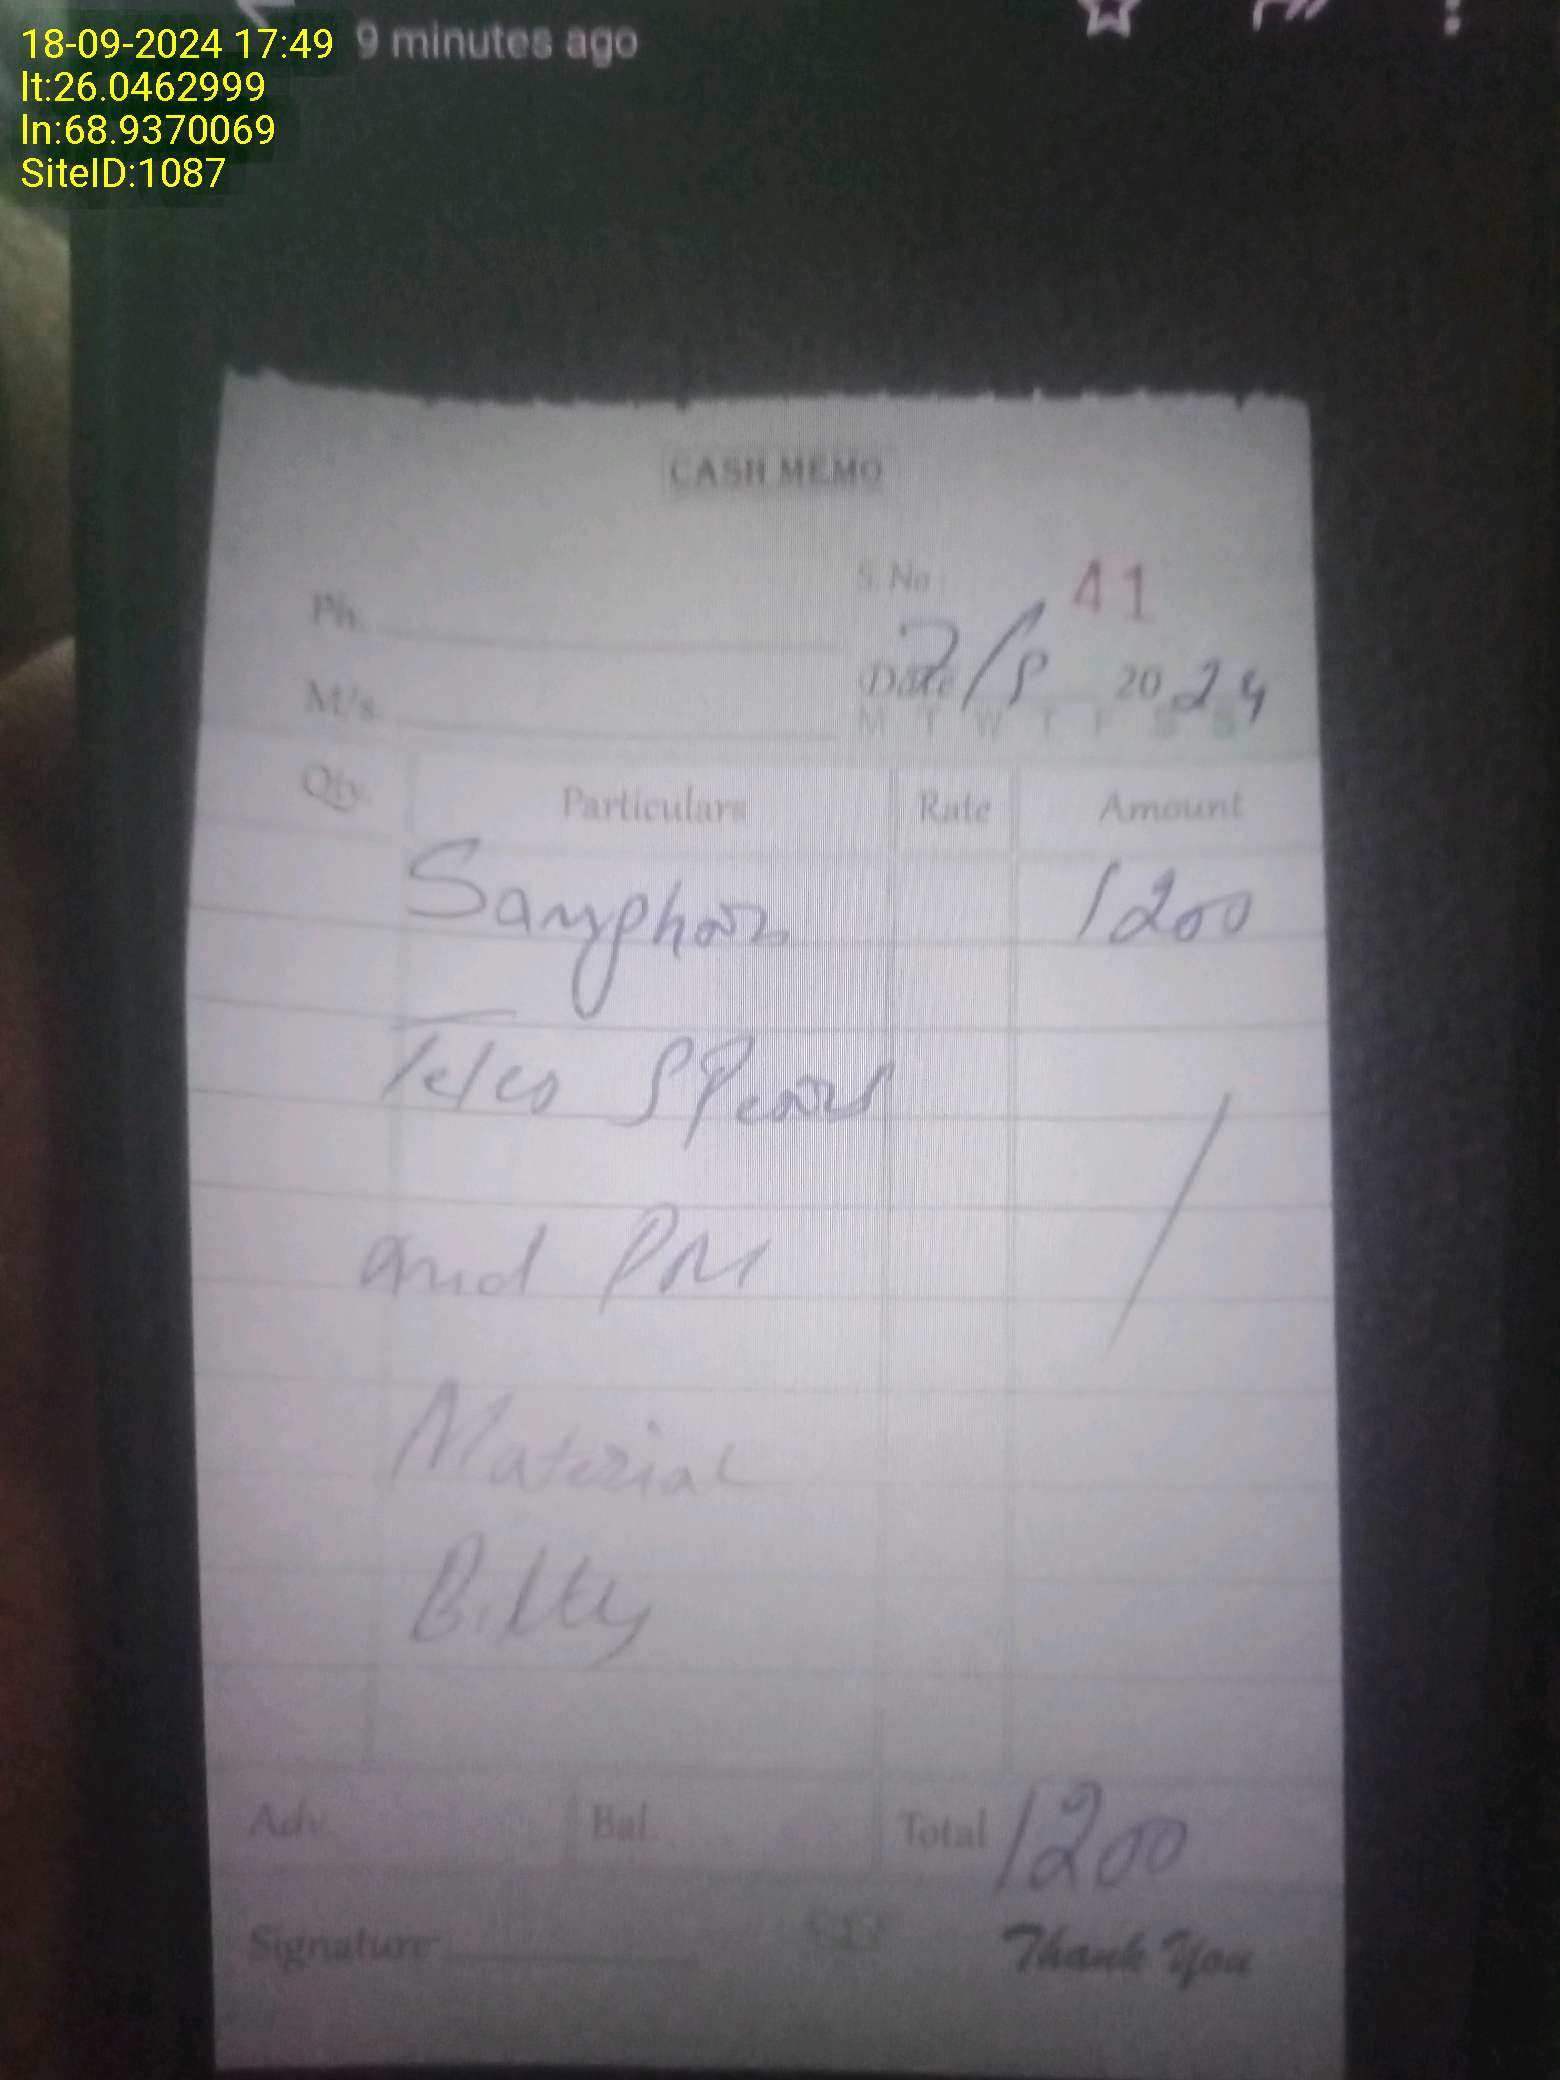 18-09-2024 17:49 9 minutes ago
lt:26.0462999
ln:68.9370069
SiteID:1087
CASH MEMO
S. No 41
Ph.
Date 2/8 2024
M/s
M T W T F S S
Qty. Particulars Rate Amount
1200
and PM
Material
Bilty
Adv. Bal. Total 1200
Signature Thank You